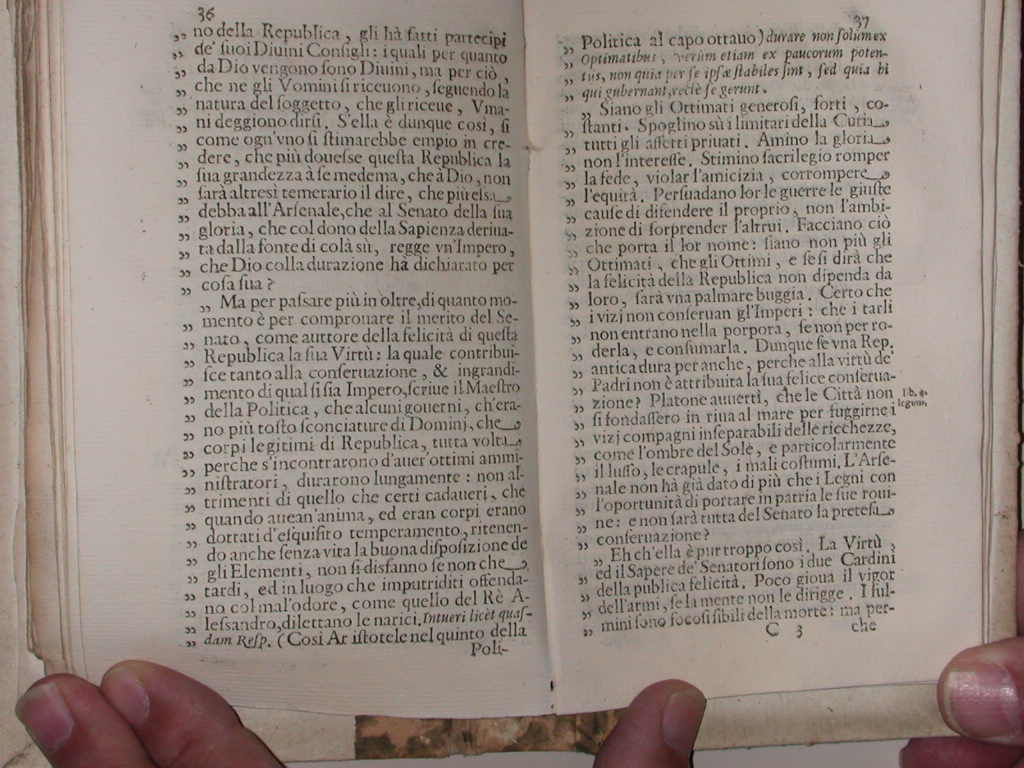 36
„ no della Republica, gli hà fatti partecipi
„ de' suoi Diuini Consigli: i quali per quanto
„ da Dio vengono sono Diuini, ma per ciò,
„ che ne gli Vomini si riceuono, seguendo la
„ natura del soggetto, che gli riceue, Vma-
„ ni deggiono dirsi. S'ella è dunque così, sì
„ come ogn'vno si stimarebbe empio in cre-
„ dere, che più douesse questa Republica la
„ sua grandezza à se medema, che à Dio, non
„ sarà altresì temerario il dire, che più essa
„ debba all'Arsenale, che al Senato della sua
„ gloria, che col dono della Sapienza deriua-
„ ta dalla fonte di colà sù, regge vn'Impero,
„ che Dio colla durazione hà dichiarato per
„ cosa sua?
„ Ma per passare più in oltre, di quanto mo-
„ mento è per comprouare il merito del Se-
„ nato, come auttore della felicità di questa
„ Republica la sua Virtù: la quale contribui-
„ sce tanto alla conseruazione, & ingrandi-
„ mento di qual si sia Impero, scriue il Maestro
„ della Politica, che alcuni gouerni, ch'era-
„ no più tosto sconciature di Dominj, che
„ corpi legitimi di Republica, tutta volta
„ perche s'incontrarono d'auer ottimi ammi-
„ nistratori, durarono lungamente: non al-
„ trimenti di quello che certi cadaueri, che
„ quando auean'anima, ed eran corpi erano
„ dottati d'esquisito temperamento, ritenen-
„ do anche senza vita la buona disposizione de
„ gli Elementi, non si disfanno se non che
„ tardi, ed in luogo che imputriditi offenda-
„ no col mal'odore, come quello del Rè A-
„ lessandro, dilettano le narici. Intueri licèt quas-
„ dam Resp. (Così Ar istotele nel quinto della
Poli-
37
„ Politica al capo ottauo) durare non solum ex
„ Optimatibus, verùm etiam ex paucorum poten-
„ tus, non quia per se ipsæ stabiles sint, sed quia bi
„ qui gubernant, rectè se gerunt.
„ Siano gli Ottimati generosi, forti, co-
„ stanti. Spoglino sù i limitari della Curia
„ tutti gli affetti priuati. Amino la gloria
„ non l'interesse. Stimino sacrilegio romper
„ la fede, violar l'amicizia, corrompere
„ l'equità. Persuadano lor le guerre le giuste
„ cause di difendere il proprio, non l'ambi-
„ zione di sorprender l'altrui. Facciano ciò
„ che porta il lor nome: siano non più gli
„ Ottimati, che gli Ottimi, e se si dirà che
„ la felicità della Republica non dipenda da
„ loro, sarà vna palmare buggia. Certo che
„ i vizj non conseruan gl'Imperi: che i tarli
„ non entrano nella porpora, se non per ro-
„ derla, e consumarla. Dunque se vna Rep.
„ antica dura per anche, perche alla virtù de'
„ Padri non è attribuita la sua felice conserua-
„ zione? Platone auuertì, che le Città non
lib. 4.
legum.
„ si fondassero in riua al mare per fuggirne i
„ vizj compagni inseparabili delle ricchezze,
„ come l'ombre del Sole, e particolarmente
„ il lusso, le crapule, i mali costumi. L'Arse-
„ nale non hà già dato di più che i Legni con
„ l'oportunità di portare in patria le sue roui-
„ ne: e non sarà tutta del Senato la pretesa
„ conseruazione?
„ Eh ch'ella è pur troppo così. La Virtù,
„ ed il Sapere de' Senatori sono i due Cardini
„ della publica felicità. Poco gioua il vigor
„ dell'armi, se la mente non le dirigge. I ful-
„ mini sono focosi sibili della morte: ma per-
C 3 che